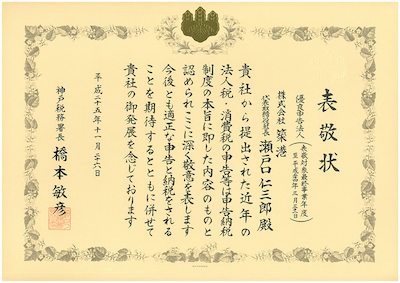 表敬状
優良申告法人
株式会社 築港
代表取締役社長 瀬戸口仁三郎 殿
貴社から提出された近年の
法人税・消費税の申告等は申告納税
制度の本旨に即した内容のものと
認められここに深く敬意を表します
今後とも適正な申告と納税をされる
ことを期待するとともに併せて
貴社の御発展を念じております
平成二十五年十一月二十六日
神戸税務署長
橋本敏彦